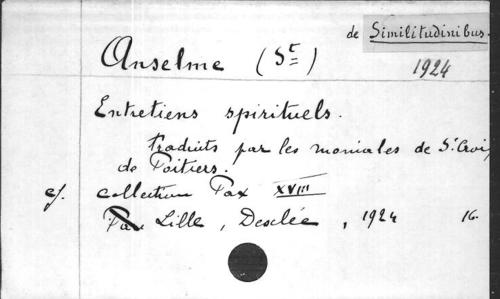 de Similitudinibus.
Anselme (St)
1924
Entretiens spirituels.
Traduits par les moniales de St Croix
de Poitiers.
cf. collection Pax XVIII
Lille, Desclée, 1924 16.